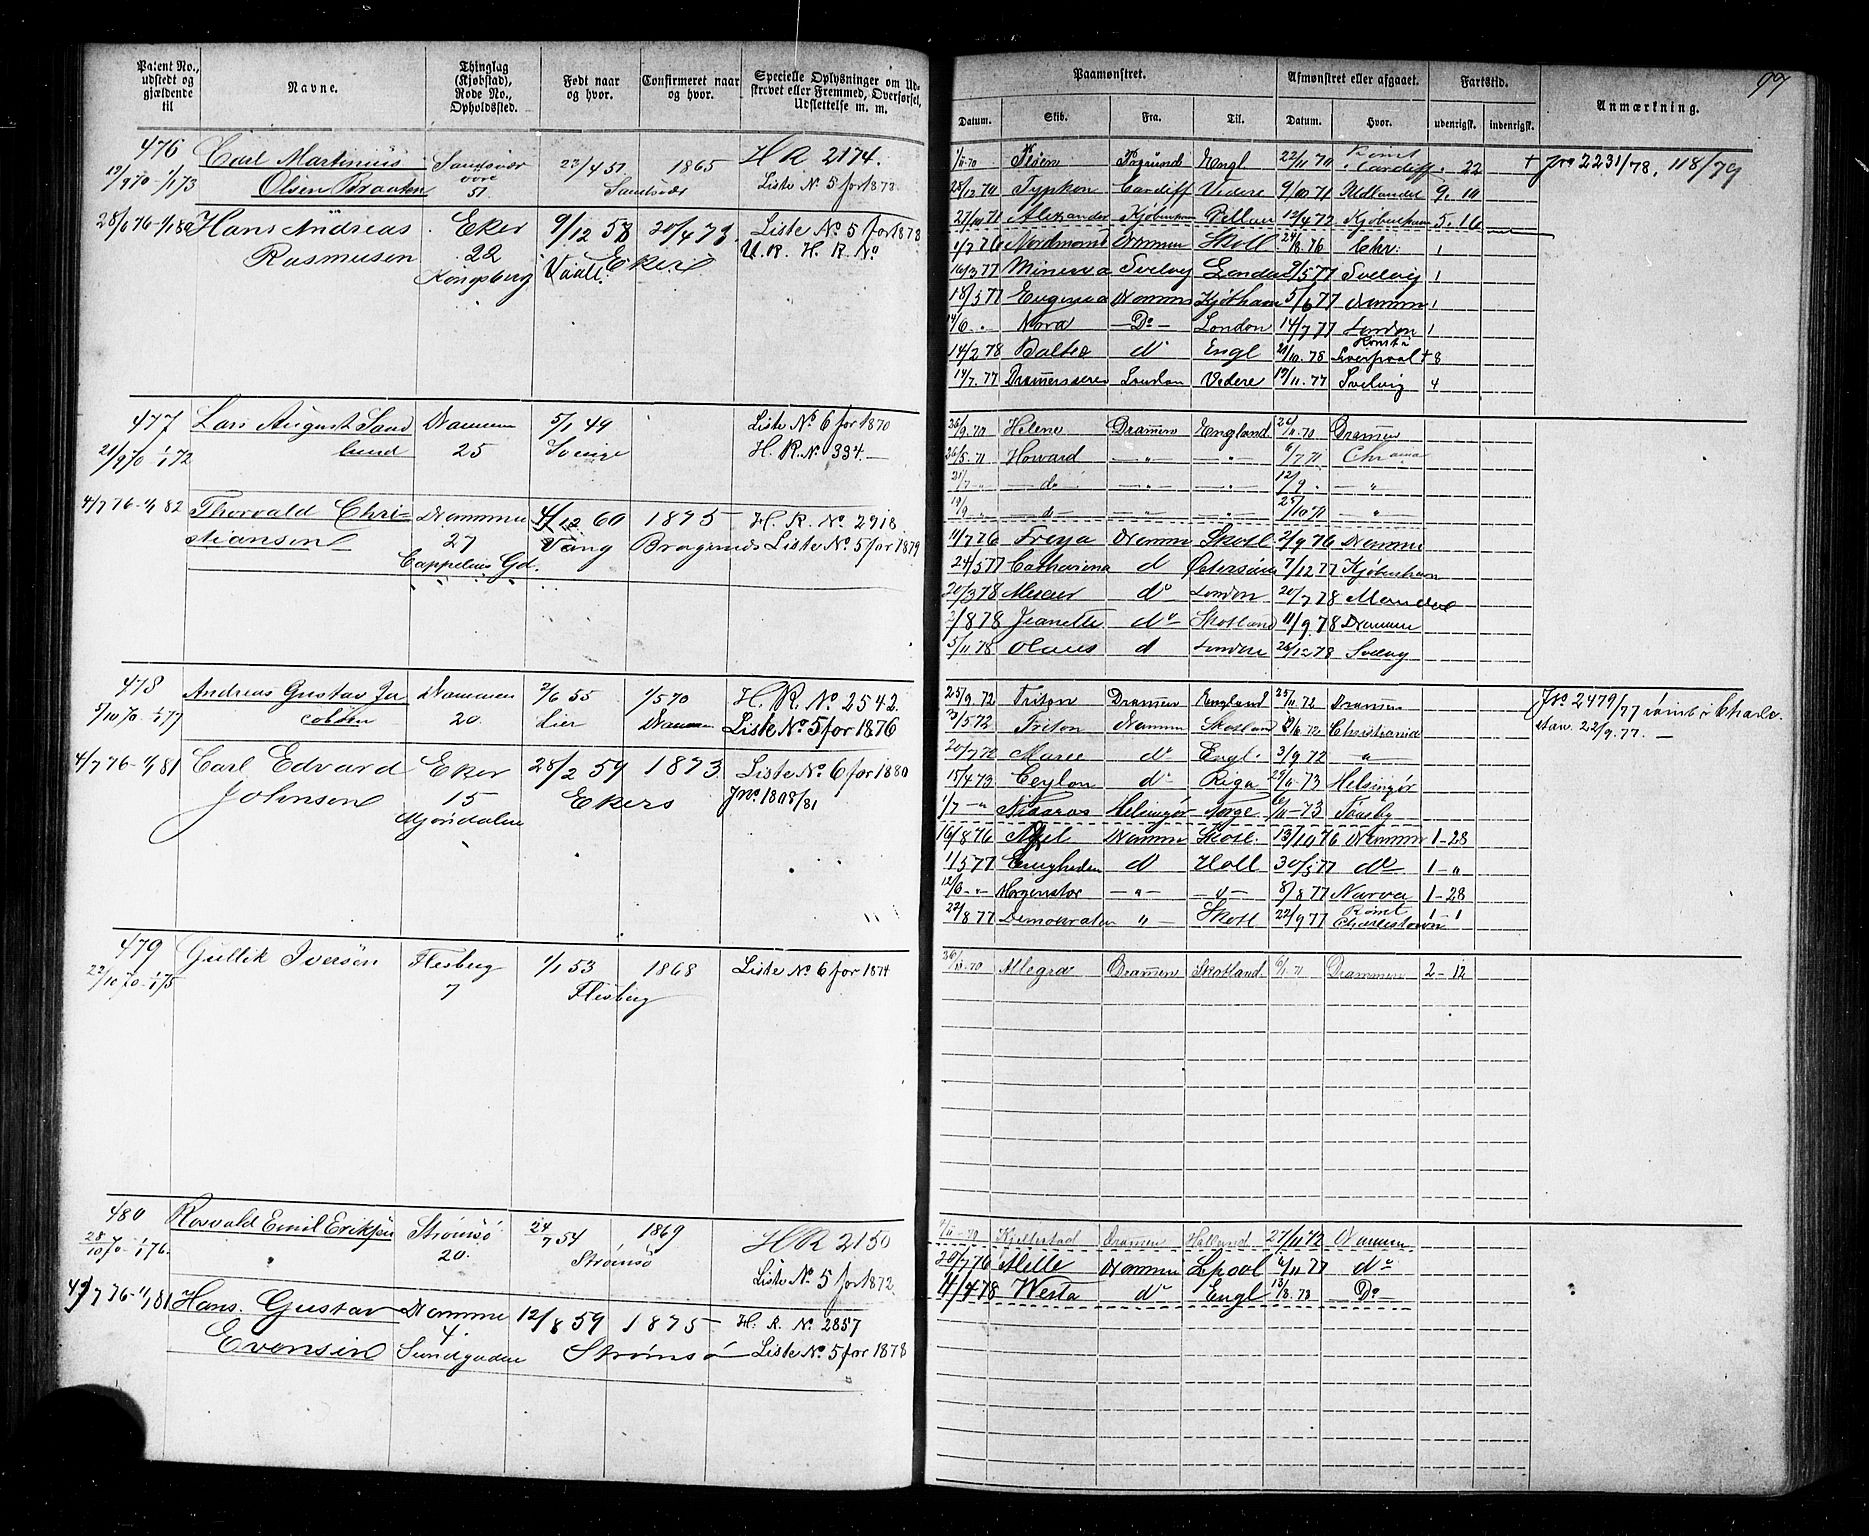 Patent No., udstedt og gjældende til
Navne.
Thinglag (Kjøbstad), Rode No., Opholdssted.
Født naar og hvor.
Confirmeret naar og hvor.
Specielle Oplysninger om Udskrevet eller Fremmed, Overførsel, Udslettelse m. m.
Paamønstret.
Afmønstret eller afgaaet.
Fartstid.
Anmærkning.
97
Datum.
Skib.
Fra.
Til.
Datum.
Hvor.
udenrigsk.
indenrigsk.
476
Carl Martinius Sandsvær 23/4 51 1865 H R 2174.
Olsen Braaten 51 Sandsvær Liste No 5 for 1873
28/6 76-1/1 80 Hans Andreas Eker 9/12 58 20/4 73. Liste No 5 for 1878
Rasmusen 22 Eker U. R. H. R. No
Kongsberg
477 Lars August Sand Drammen 5/1 49 Liste No 6 for 1870
lund 25 Svinge H. R. No 334.—
21/9 70 1/1 72
4/7 76-1/1 82 Thorvald Chri- Drammen 4/12 60 1875 H. R. No 2918
stiansen 27 Vang Bragernes Liste No 5 for 1879
Cappelens Gd.
478 Andreas Gustav Ja Drammen 2/6 55 1/5 70 H. R. No 2542.
5/10 70-1/1 77 cobsen 20. Lier Drammen Liste No 5 for 1876
4/7 76-1/1 81 Carl Edvard Eker 28/2 59 1873 Liste No 6 for 1880
Johnsen 15 Ekers Jno 1808/81
Mjøndalen
479 Gullik Iversen Flesberg 1/1 53 1868 Liste No 6 for 1874
22/10 70-1/1 75 7 Flesberg
480 Rosvald Emil Eriksen Strømsø 24/7 54 1869 H R 2150
28/10 70-1/1 76. 20. Strømsø Liste No 5 for 1872
4/7 76-1/1 81 Hans Gustav Drammen 12/8 59 1875 H. R. No 2857
Evensen 4. Strømsø Liste No 5 for 1878
Sundgaden
Engl 22/11 70 Cardiff 22 + Jno 2231/78, 118/79
28/12 70 Cardiff Videre 9/10 71 9. 10
27/10 71 Alexander Kjøbenhavn 12/4 72 Kjøbenhavn 5. 16
1/7 76 Drammen Skotl 24/8. 76 Chr. 1
16/3 77 Minerva Svelvig London 9/5 77 Svelvig 1
18/5 77 Eugenia Drammen 5/6 77 Drammen 1
14/6 . Nora —Do— London 14/7 77 London 1
14/2 78 do Engl Rømt Liverpool + 8
14/7. 77 London Videre 19/11. 77 Svelvig 4
Helene Drammen England Drammen
26/5. 71 Howard — " — — " — Chrania
21/7 " — do — — " — — " — 12/9 . — " —
19/9 " — do — — " — — " — 25/10 71 — " —
11/7 76 Freya Drammen Skotl 2/9 76 Drammen
24/5 77 Catharina do 7/12 77 Kjøbenhavn
20/3 78 do London 20/7 78 Mandal
2/8 78 Jeanette do Skotland 11/9. 78 Drammen
5/11 78 Olaus d London 26/12 78 Svelvig
23/9. 72 Triton Drammen England 25/11 72 Drammen Jno 2479/77 rømt i Charle-
3/5 72 Triton Drammen Skotland Christiania stown 22/9. 77. —
20/7 72 Marie do Engl. 3/9 72 "
15/4 73 Ceylon do Riga 73 Helsingør
1/7 — " Helsingør Norge —73 Tønsby
16/8 76 Drammen Skotl. 13/10 76 Drammen 1-28
1/5 77 Enigheden do Holl 30/5 77 do 1 - "
Morgenstar — " — — " — 8/8 77 Narva 1-28
22/8 77 Demokraten " — Skotl 22/9 77 Rømt Charlestown 1 - 1
Allegra Drammen Skotland. Drammen 2-12
Kjellestad Drammen Holland 27/11 72 Drammen
20/7 76 Drammen Lpool do
4/4 78 Westa do Engl 13/8. 78 — Do —